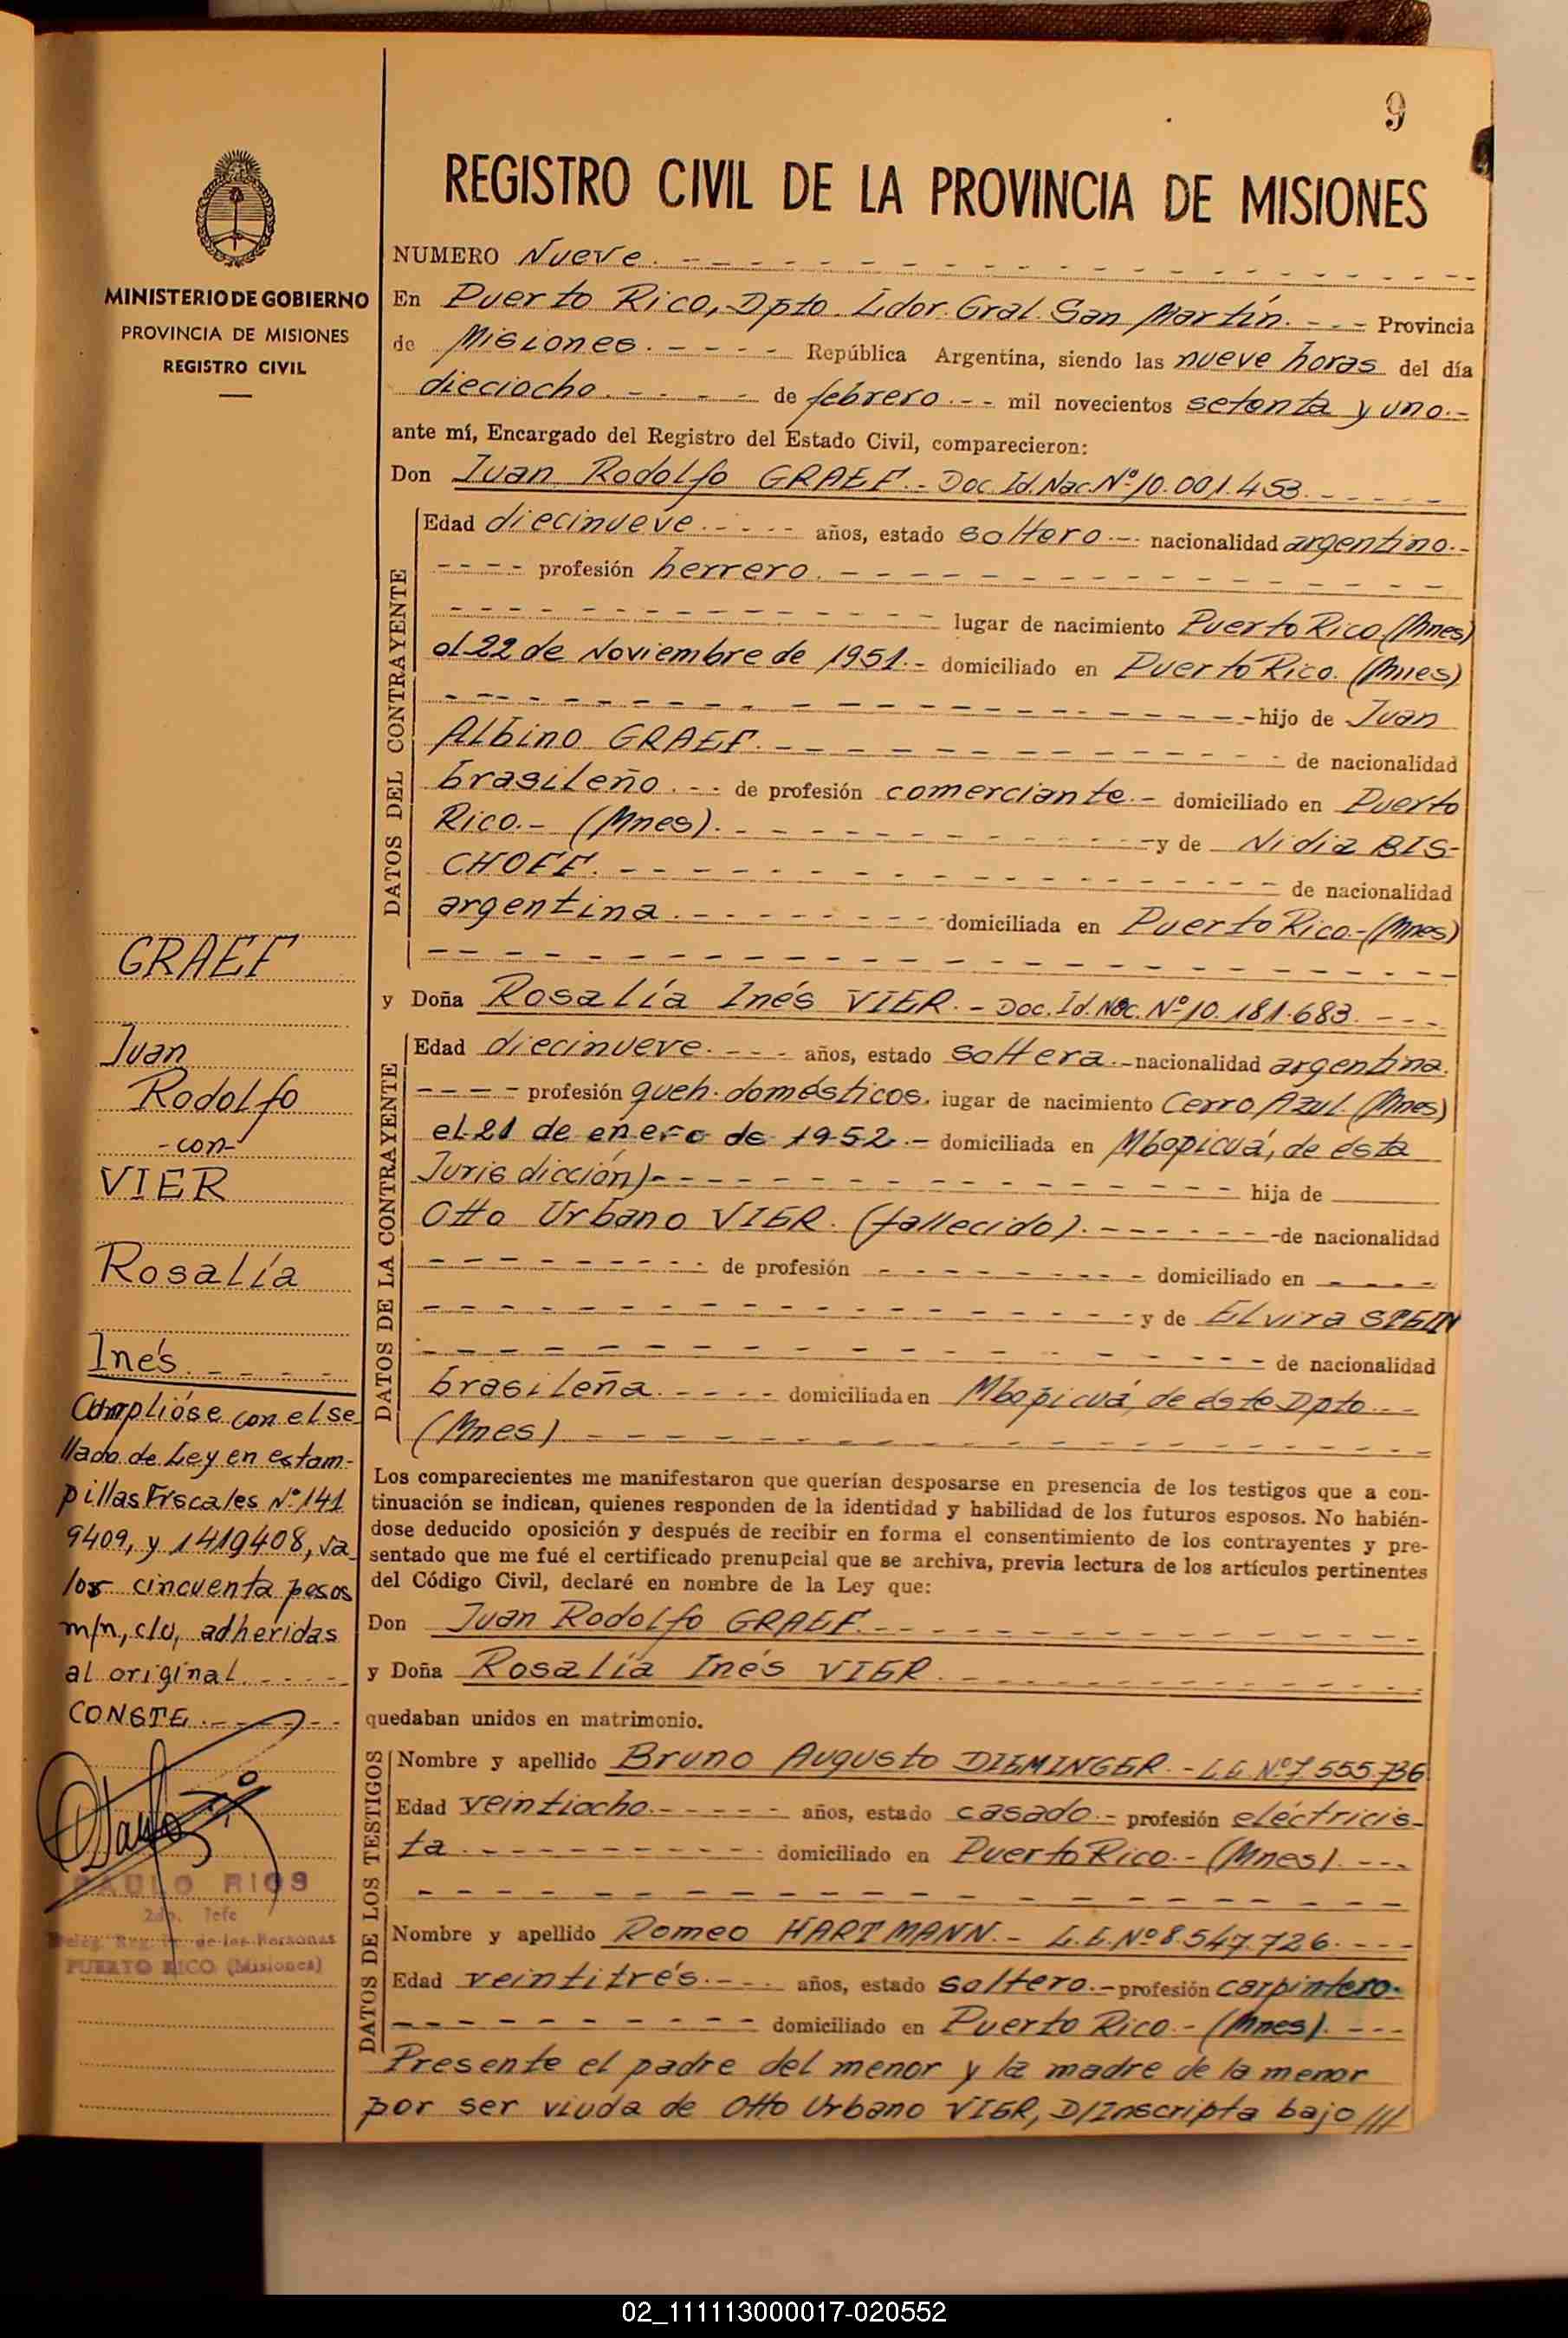 9
REGISTRO CIVIL DE LA PROVINCIA DE MISIONES
MINISTERIO DE GOBIERNO
PROVINCIA DE MISIONES
REGISTRO CIVIL
GRAEF
Juan
Rodolfo
-con-
VIER
Rosalía
Inés.
Cumplióse con el se
llado de Ley en estam-
pillas Fiscales Nº 141
9409, y 1419408, va
lor cincuenta pesos
m/n, c/u, adheridas
al original.
CONSTE.
PAULO RIOS
2do. Jefe
de las Personas
PUERTO RICO (Misiones)
NUMERO Nueve.
En Puerto Rico, Dpto. Lidor. Gral. San Martín. Provincia
de Misiones. República Argentina, siendo las nueve horas del día
dieciocho. de febrero. mil novecientos setenta y uno.-
ante mí, Encargado del Registro del Estado Civil, comparecieron:
Don Juan Rodolfo GRAEF.- Doc. Id. Nac. Nº 10.001.453.
DATOS DEL CONTRAYENTE
Edad diecinueve. años, estado soltero.-. nacionalidad argentino.-
profesión herrero.
lugar de nacimiento Puerto Rico (Mnes)
el 22 de Noviembre de 1951.- domiciliado en Puerto Rico. (Mnes)
hijo de Juan
Albino GRAEF. de nacionalidad
brasileño. de profesión comerciante.- domiciliado en Puerto
Rico.- (Mnes). y de Nidia BIS-
CHOFF. de nacionalidad
argentina. domiciliada en Puerto Rico.- (Mnes)
y Doña Rosalía Inés VIER.- Doc. Id. Nac. Nº 10.181.683.
DATOS DE LA CONTRAYENTE
Edad diecinueve. años, estado soltera.- nacionalidad argentina.
profesión queh. domésticos. lugar de nacimiento Cerro Azul. (Mnes)
el 21 de enero de 1952.- domiciliada en Mbopicuá, de esta
Jurisdicción)- hija de
Otto Urbano VIER. (fallecido). de nacionalidad
de profesión domiciliado en
y de Elvira STEIN
de nacionalidad
brasileña. domiciliada en Mbopicuá, de este Dpto.
(Mnes)
Los comparecientes me manifestaron que querían desposarse en presencia de los testigos que a con-
tinuación se indican, quienes responden de la identidad y habilidad de los futuros esposos. No habién-
dose deducido oposición y después de recibir en forma el consentimiento de los contrayentes y pre-
sentado que me fué el certificado prenupcial que se archiva, previa lectura de los artículos pertinentes
del Código Civil, declaré en nombre de la Ley que:
Don Juan Rodolfo GRAEF.
y Doña Rosalía Inés VIER.
quedaban unidos en matrimonio.
DATOS DE LOS TESTIGOS
Nombre y apellido Bruno Augusto DIEMINGER.- L.E. Nº 7.555.736
Edad veintiocho. años, estado casado.- profesión eléctricis-
ta. domiciliado en Puerto Rico.- (Mnes).
Nombre y apellido Romeo HARTMANN.- L.E. Nº 8.547.726.
Edad veintitrés. años, estado soltero.- profesión carpintero.
domiciliado en Puerto Rico.- (Mnes).
Presente el padre del menor y la madre de la menor
por ser viuda de Otto Urbano VIER, D/Inscripta bajo ///
02_111113000017-020552